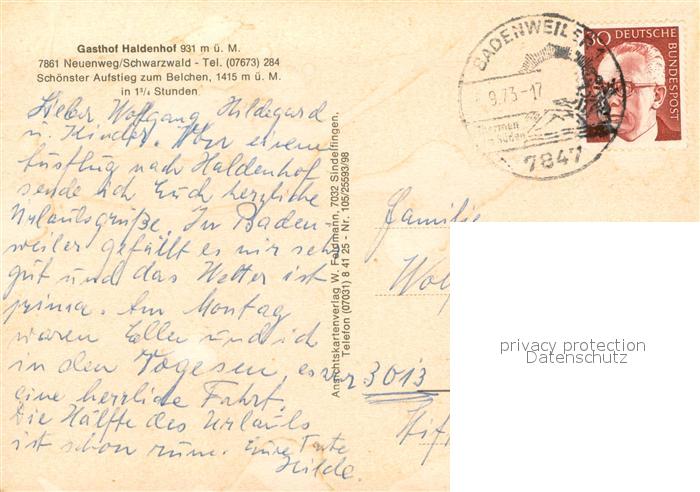 Gasthof Haldenhof 931 m ü. M.
7861 Neuenweg/Schwarzwald - Tel. (07673) 284
Schönster Aufstieg zum Belchen, 1415 m ü. M.
in 1¼ Stunden
Lieber Wolfgang Hildegard
u. Kinder. Von einem
Ausflug nach Haldenhof
sende ich Euch herzliche
Urlaubsgrüße. In Baden-
weiler gefällt es mir sehr
gut und das Wetter ist
prima. Am Montag
waren und ich
in den Vogesen, es war
eine herrliche Fahrt.
Die Hälfte des Urlaubs
ist schon rum. Eure Tante
Hilde.
Ansichtskartenverlag W. Feldmann, 7032 Sindelfingen,
Telefon (07031) 8 41 25 - Nr. 105/25593/98
BADENWEILER 1
9.73-17
7847
30 DEUTSCHE
BUNDESPOST
Familie
Wolf
3013
privacy protection
Datenschutz